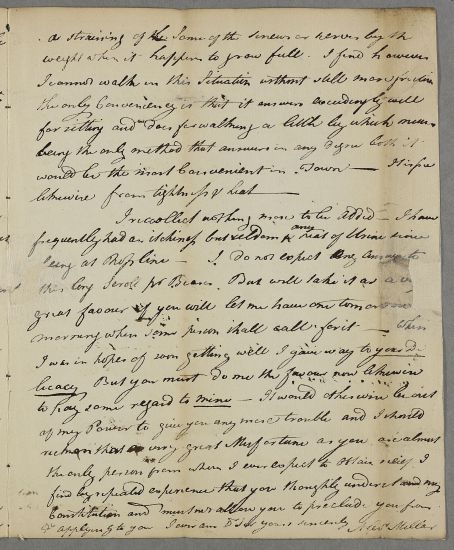 a straining of the some of the sinews or nerves by the
weight when it happens to grow full. I find however
I cannot walk in this Situation without still more friction
the only Conveniency is that it answers exceedingly well
for sitting and does for walking a little by which means
being the only method that answers in any degree both it
would be the most Convenient in Town — It is free
likewise from tightness & heat —
I recollect nothing more to be added — I have
frequently had an itching but seldom any heat of Urine since
being at — I do not expect any answer to
this long Scrole pr Bearer. But will take it as a
great favour if you will let me have one tomorrow
morning when some person shall call for it — When
I was in hopes of soon getting well I gave way to your de-
licacy But you must do me the favour now likewise
to pay some regard to mine — It would otherwise be out
of my Power to give you any more trouble and I should
reckon that a very great Misfortune as you are almost
the only person from whom I ever expect to obtain relief. I
find by repeated experience that you thoughly understand my
Constitution and must not allow you to preclude you from
applying to you I ever am Dr Sir yours sincerely
Millar